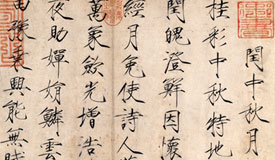 閏中秋月
桂彩中秋特地
閏魄澄鮮因懷
經月免使詩人
萬象斂光增浩
夜助嬋娟鱗雲
田豁乘興能無